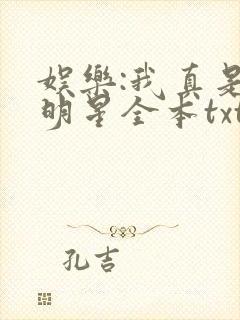 娱乐:我真是
明星全本txt
孔吉